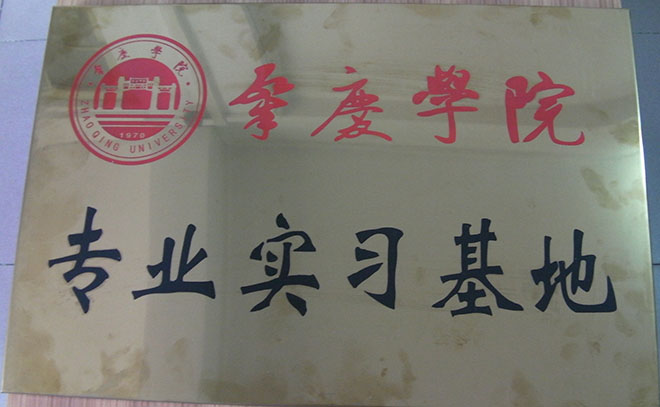 肇慶學院
肇慶學院
ZHAOQING UNIVERSITY
1970
专业实习基地